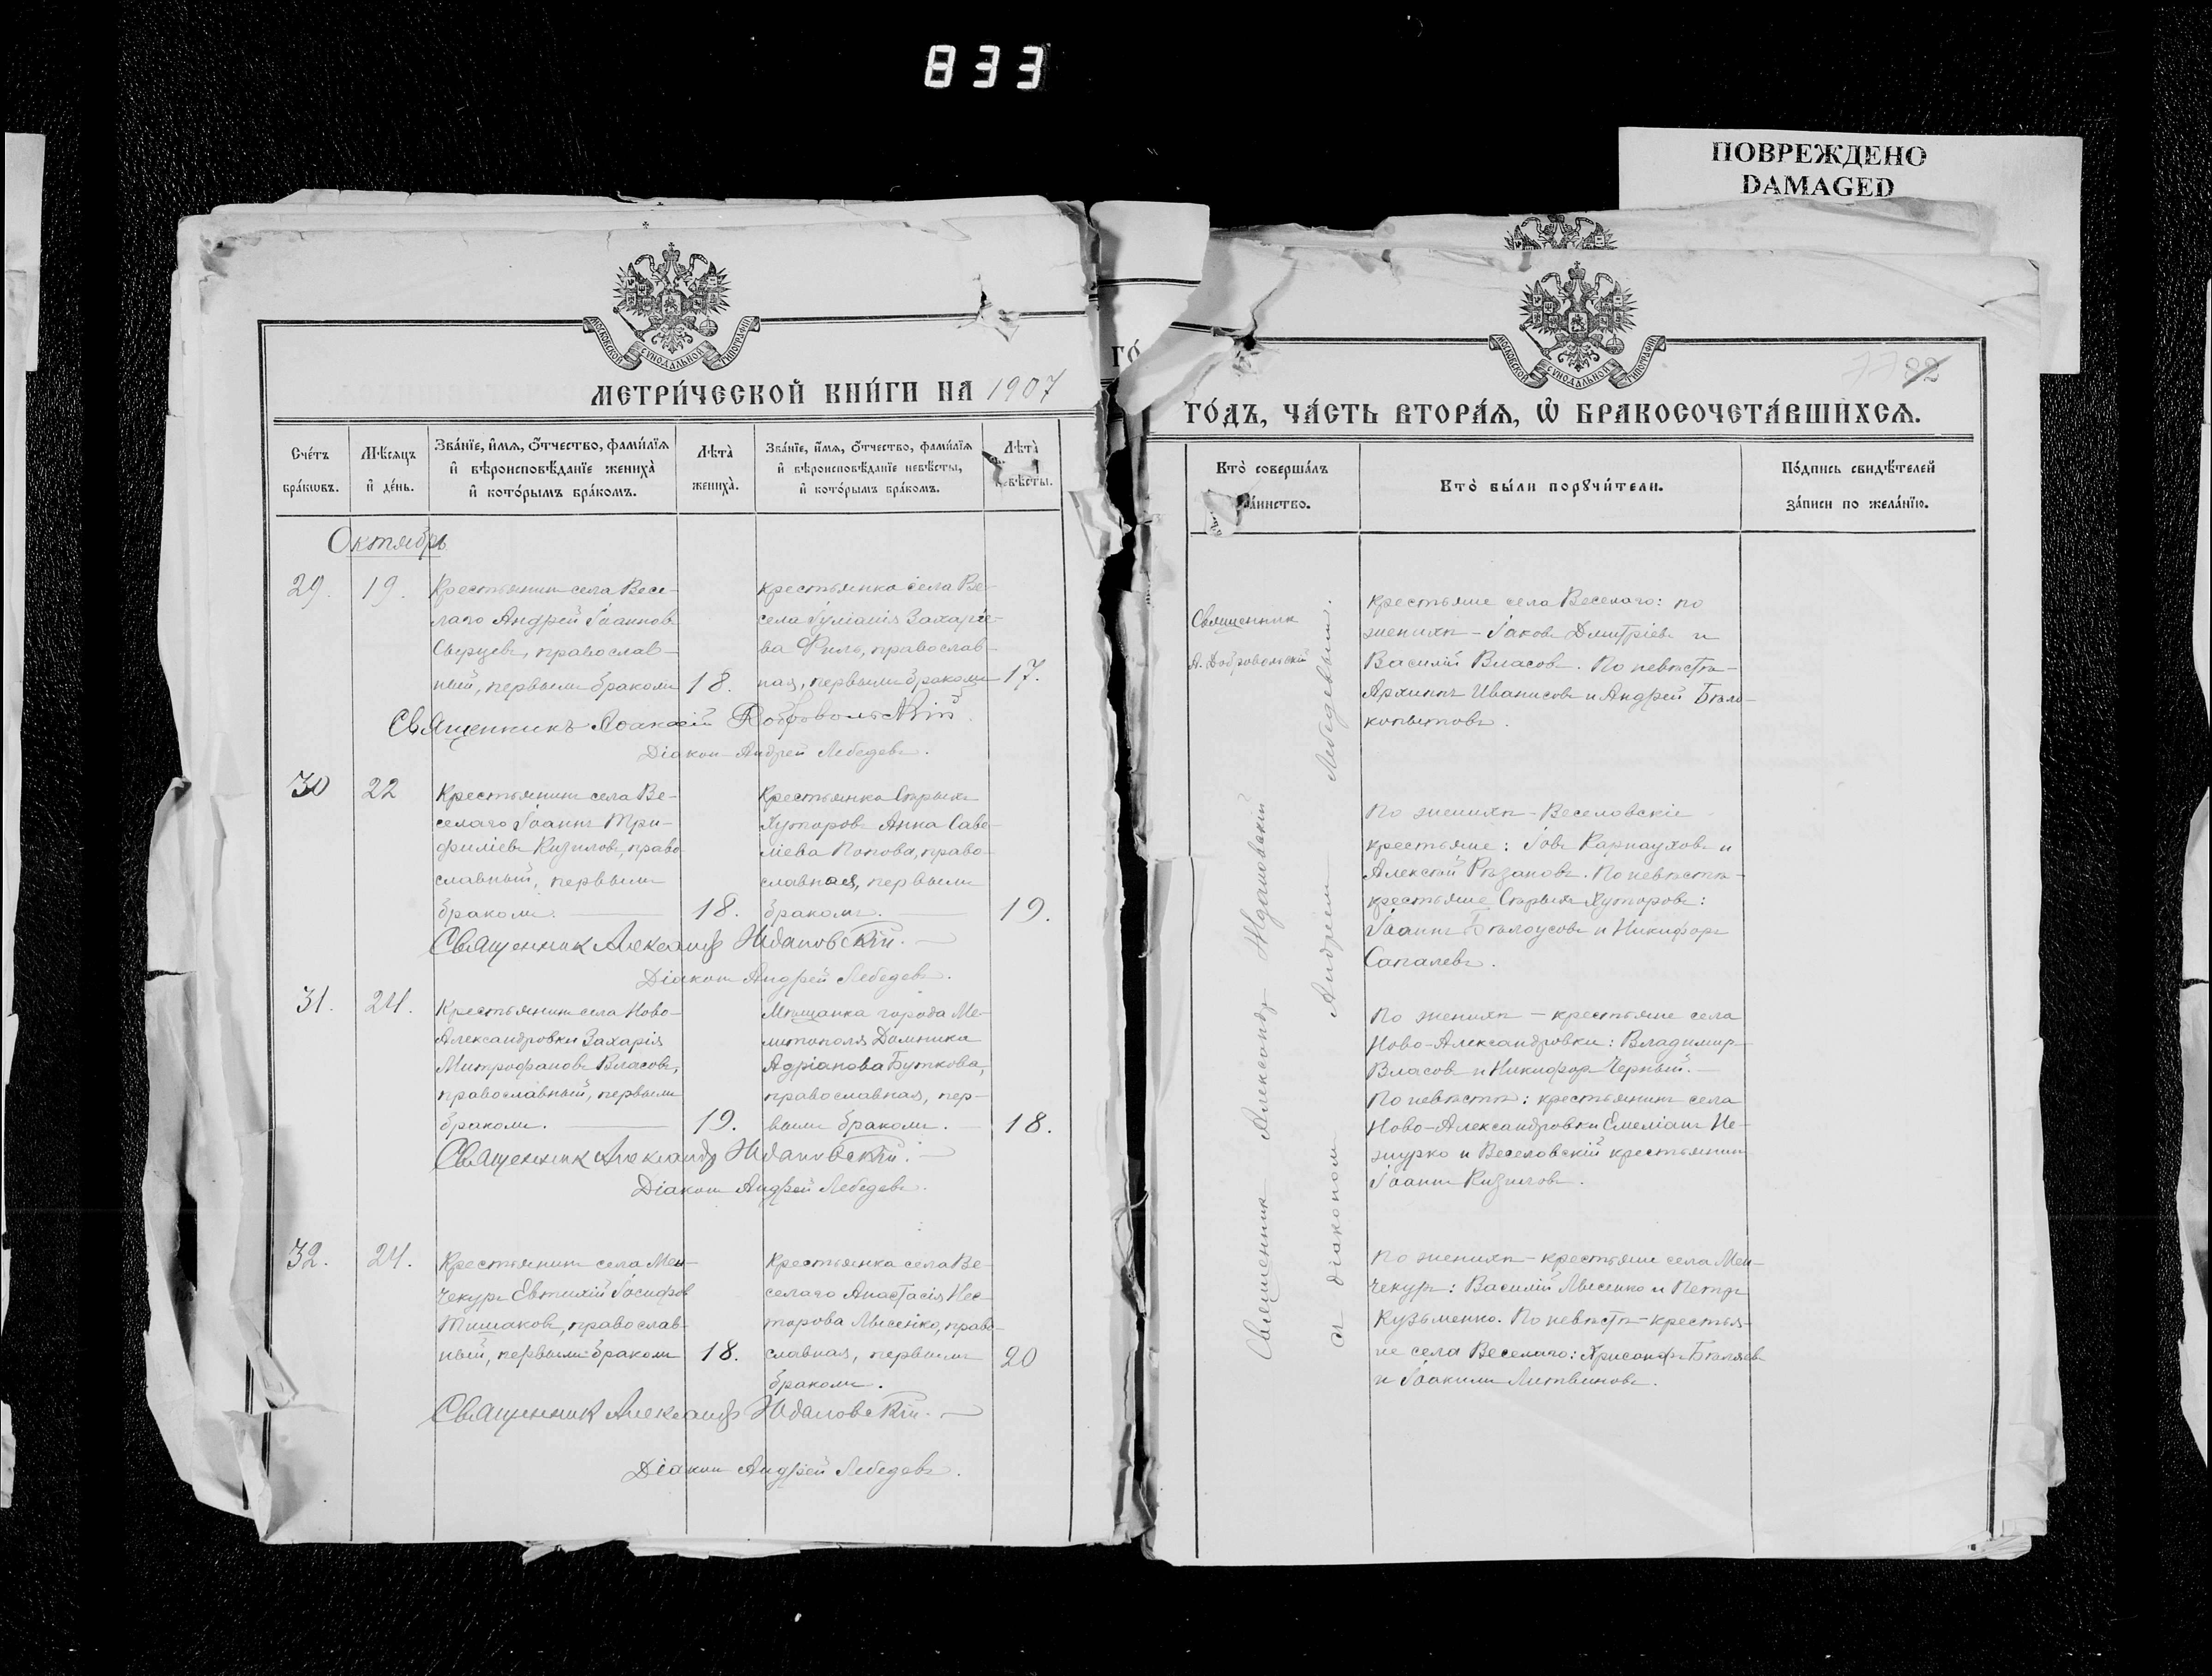 833
ПОВРЕЖДЕНО
DAMAGED
МОСКОВСКОЙ СѴНОДАЛЬНОЙ ТИПОГРАФІИ
МЕТРИ́ЧЕСКОЙ КНИ́ГИ НА 1907
Сче́тъ бра́кѡвъ.
Мѣ́сяцъ и҆ де́нь.
Зва́нїе, и҆́мя, ѻ҆́тчество, фами́лїя и҆ вѣроисповѣ́данїе жениха̀ и҆ кото́рымъ бра́комъ.
Лѣта̀ жениха̀.
Зва́нїе, и҆́мя, ѻ҆́тчество, фами́лїя и҆ вѣроисповѣ́данїе невѣ́сты, и҆ кото́рымъ бра́комъ.
Лѣта̀ невѣ́сты.
Октябрь
29. 19.
Крестьянинъ села Весе-
лаго Андрей Іоанновъ
Сверцевъ, православ-
ный, первымъ бракомъ 18.
крестьянка села Ве-
села Іуліанія Захаріе-
ва Филь, православ-
ная, первымъ бракомъ 17.
Священникъ Іоакосій Добровольскій.
Діаконъ Андрей Лебедевъ.
30 22
Крестьянинъ села Ве-
селаго Іоаннъ Три-
филіевъ Кизиловъ, право-
славный, первымъ
бракомъ. 18.
Крестьянка Старыхъ
Хуторовъ Анна Саве-
ліева Попова, право-
славная, первымъ
бракомъ. 19.
Священник Александръ Ждановскій.
Діаконъ Андрей Лебедевъ.
31. 24.
Крестьянинъ села Ново-
Александровки Захарія
Митрофановъ Власовъ,
православный, первымъ
бракомъ. 19.
Мѣщанка города Ме-
литополя Домника
Адріанова Буткова,
православная, пер-
вымъ бракомъ. 18.
Священник Александръ Ждановскій.
Діаконъ Андрей Лебедевъ.
32. 24.
Крестьянинъ села Мен-
чекуръ Евтихій Іосифов
Тишаковъ, православ-
ный, первымъ бракомъ 18.
Крестьянка села Ве-
селаго Анастасія Нес-
торова Лысенко, право-
славная, первымъ 20
бракомъ.
Священник Александръ Ждановскій.
Діаконъ Андрей Лебедевъ.
МОСКОВСКОЙ СѴНОДАЛЬНОЙ ТИПОГРАФІИ
77 82
ГО́ДЪ, ЧА́СТЬ ВТОРА́Я, Ѡ҆ БРАКОСОЧЕТА́ВШИХСЯ.
Кто̀ соверша́лъ та́инство.
Кто̀ бы́ли порꙋчи́тели.
По́дпись свидѣ́телей за́писи по жела́нїю.
Священникъ
А. Добровольскій
Священникъ Александръ Ждановскій
съ діакономъ Андреемъ Лебедевымъ.
Крестьяне села Веселаго: по
женихѣ - Іаковъ Дмитріевъ и
Василій Власовъ. По невѣстѣ-
Архиппъ Иванисовъ и Андрей Бѣло-
копытовъ.
По женихѣ - Веселовскіе
крестьяне: Іовъ Карнауховъ и
Алексѣй Рѣзановъ. По невѣстѣ-
крестьяне Старыхъ Хуторовъ:
Іоаннъ Бѣлоусовъ и Никифоръ
Сапалевъ.
По женихѣ - крестьяне села
Ново-Александровки: Владимиръ
Власовъ и Никифоръ Черный. -
По невѣстѣ: крестьянинъ села
Ново-Александровки Емеліанъ Не-
журко и Веселовскій крестьянинъ
Іоаннъ Кизиловъ.
По женихѣ - крестьяне села Мен-
чекуръ: Василій Лысенко и Петръ
Кузьменко. По невѣстѣ - крестья-
не села Веселаго: Хрисанфъ Бѣляевъ
и Іоакимъ Литвиновъ.